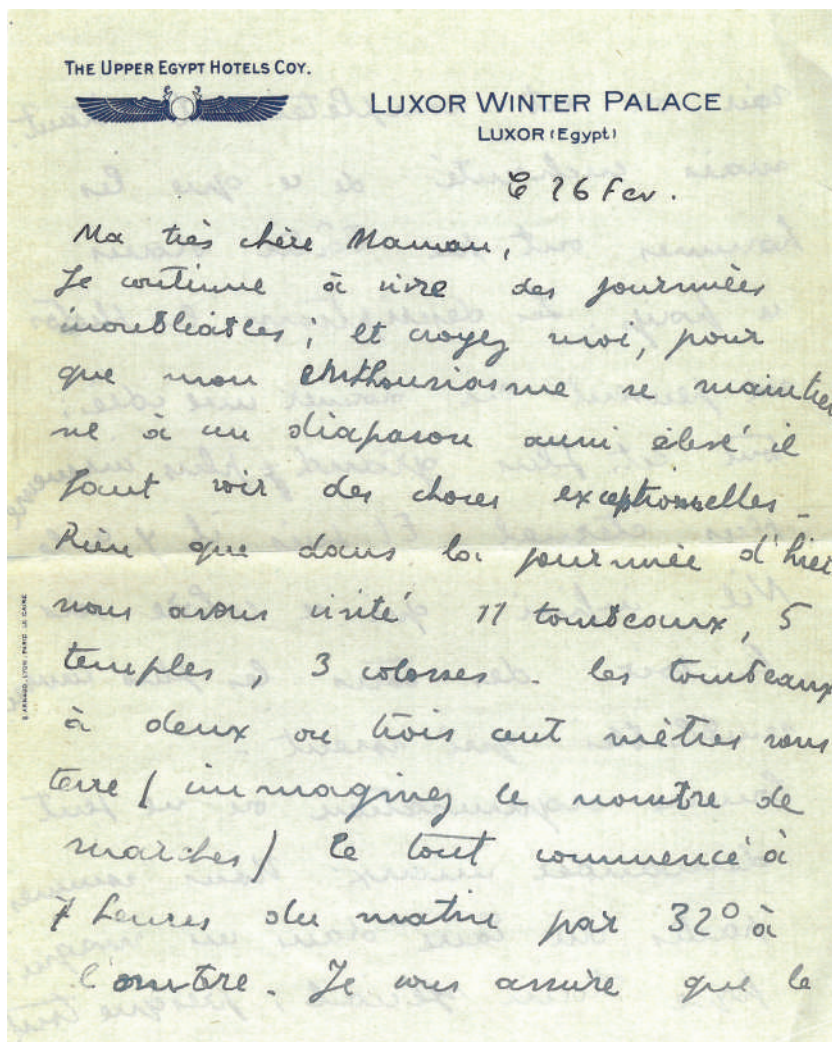 THE UPPER EGYPT HOTELS COY.
LUXOR WINTER PALACE
LUXOR (Egypt)
Le 26 Fev.
Ma très chère Maman,
Je continue à vivre des journées
inoubliables ; et croyez moi, pour
que mon enthousiasme se maintien
ne à un diapason aussi élevé il
faut voir des choses exceptionnelles _
Rien que dans la journée d'hier
nous avons visité 11 tombeaux, 5
temples, 3 colosses. les tombeaux
à deux ou trois cent mètres sous
terre / immaginez le nombre de
marches / le tout commencé à
7 heures du matin par 32° à
l'ombre. Je vous assure que le